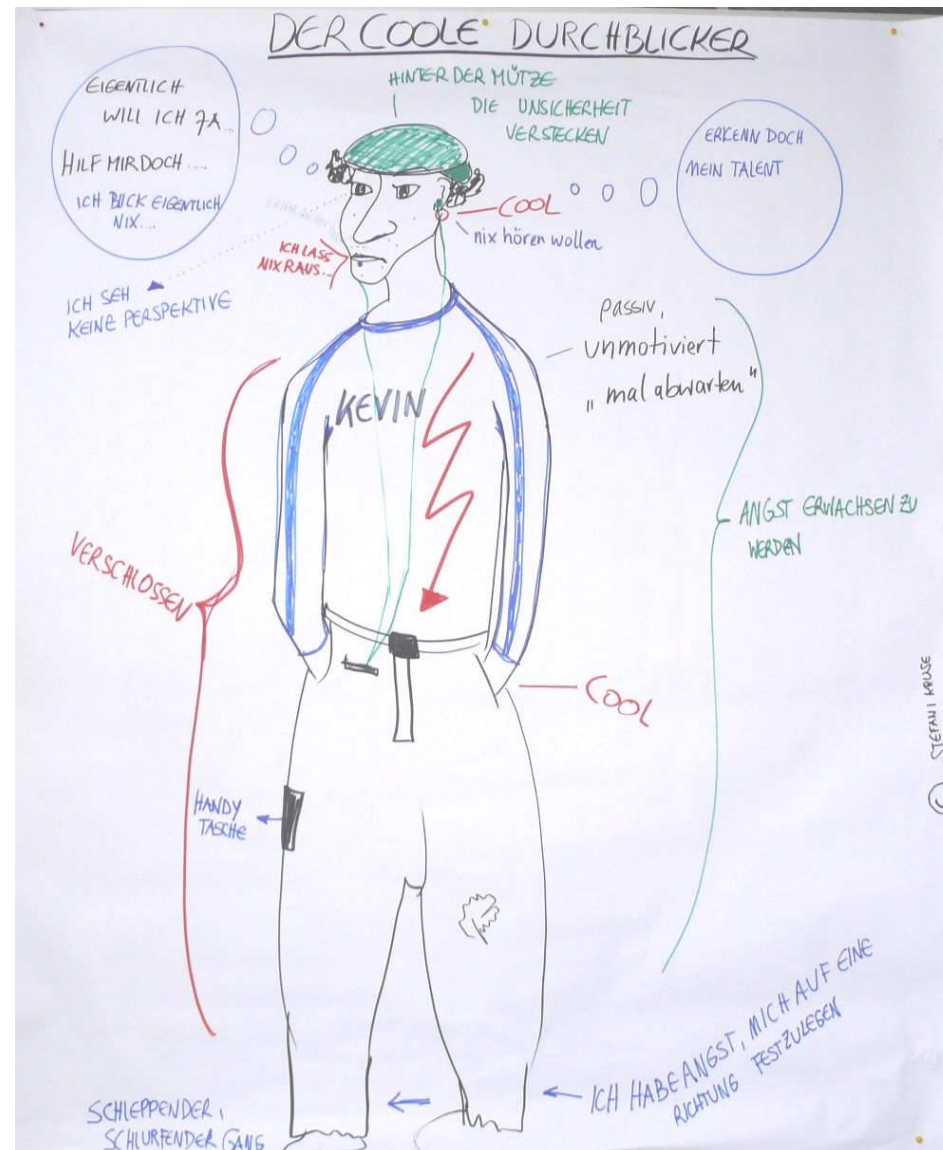 DER COOLE DURCHBLICKER
EIGENTLICH
WILL ICH JA...
HILF MIR DOCH....
ICH BLICK EIGENTLICH
NIX...
HINTER DER MÜTZE
DIE UNSICHERHEIT
VERSTECKEN
ERKENN DOCH
MEIN TALENT
COOL
nix hören wollen
ICH LASS
NIX RAUS...
ICH SEH
KEINE PERSPEKTIVE
passiv,
unmotiviert
„mal abwarten“
KEVIN
VERSCHLOSSEN
ANGST ERWACHSEN ZU
WERDEN
COOL
HANDY
TASCHE
ICH HABE ANGST, MICH AUF EINE
RICHTUNG FESTZULEGEN
SCHLEPPENDER,
SCHLURFENDER GANG